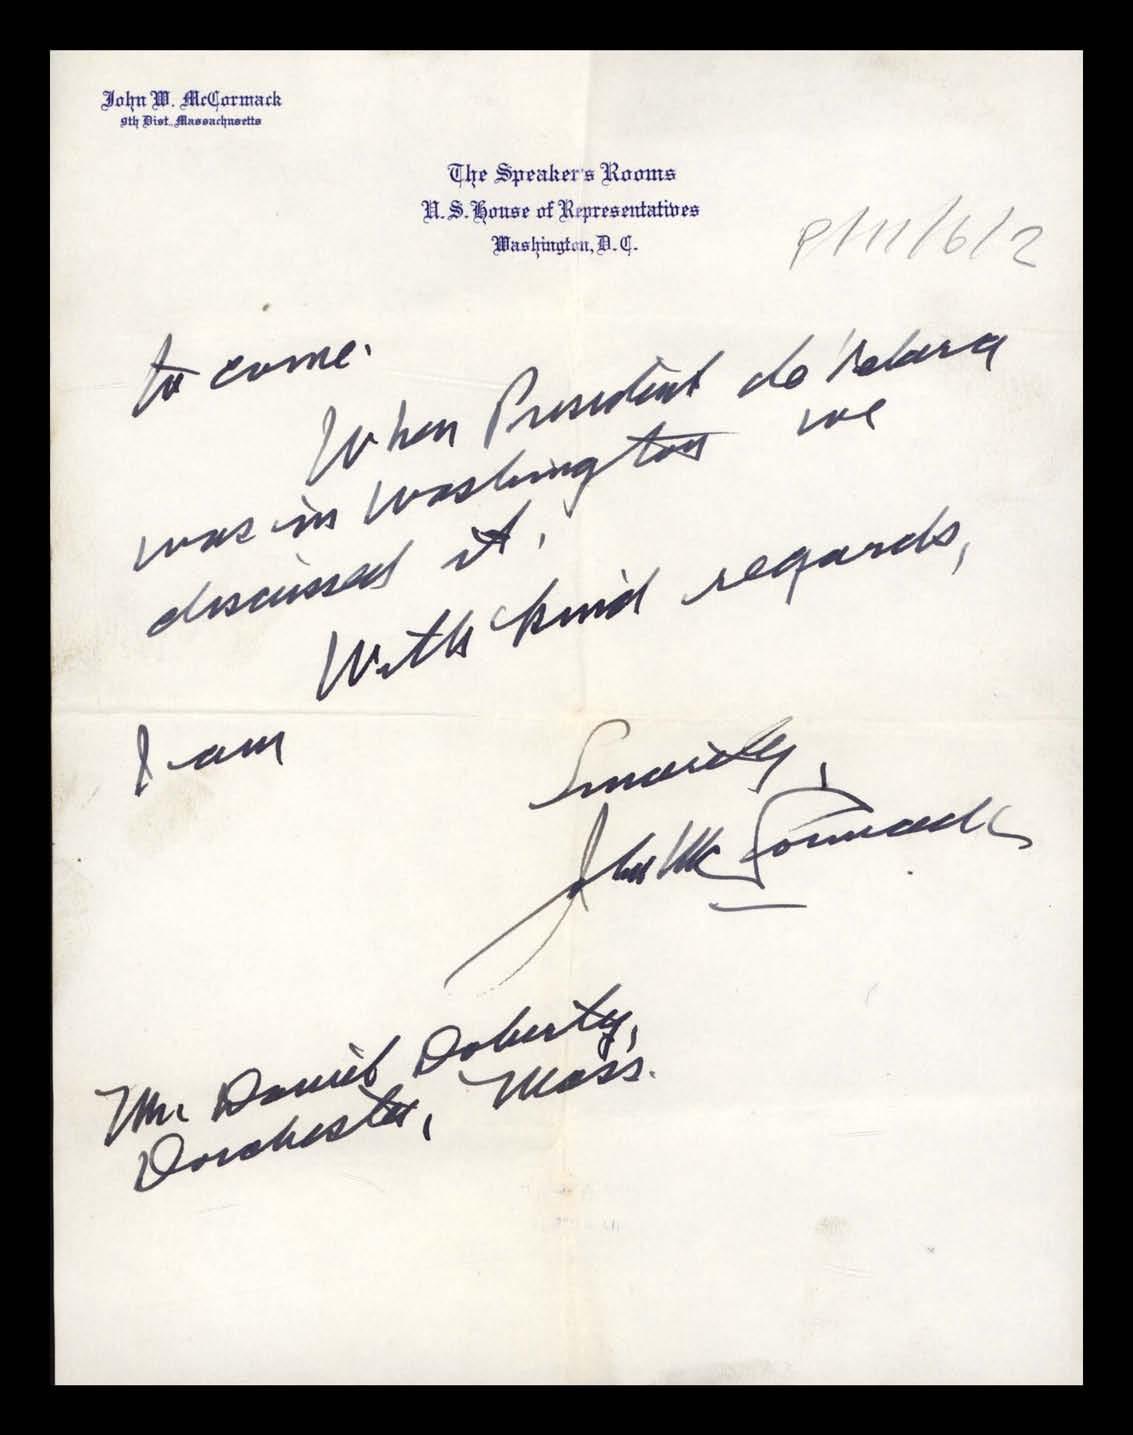 John W. McCormack
9th Dist., Massachusetts
The Speaker's Rooms
U.S. House of Representatives
Washington, D.C.
P/11/6/2
to come.
When President de Valera
was in Washington we
discussed it.
With kind regards,
I am
Sincerely,
John McCormack
Mr. Daniel Doherty,
Dorchester, Mass.